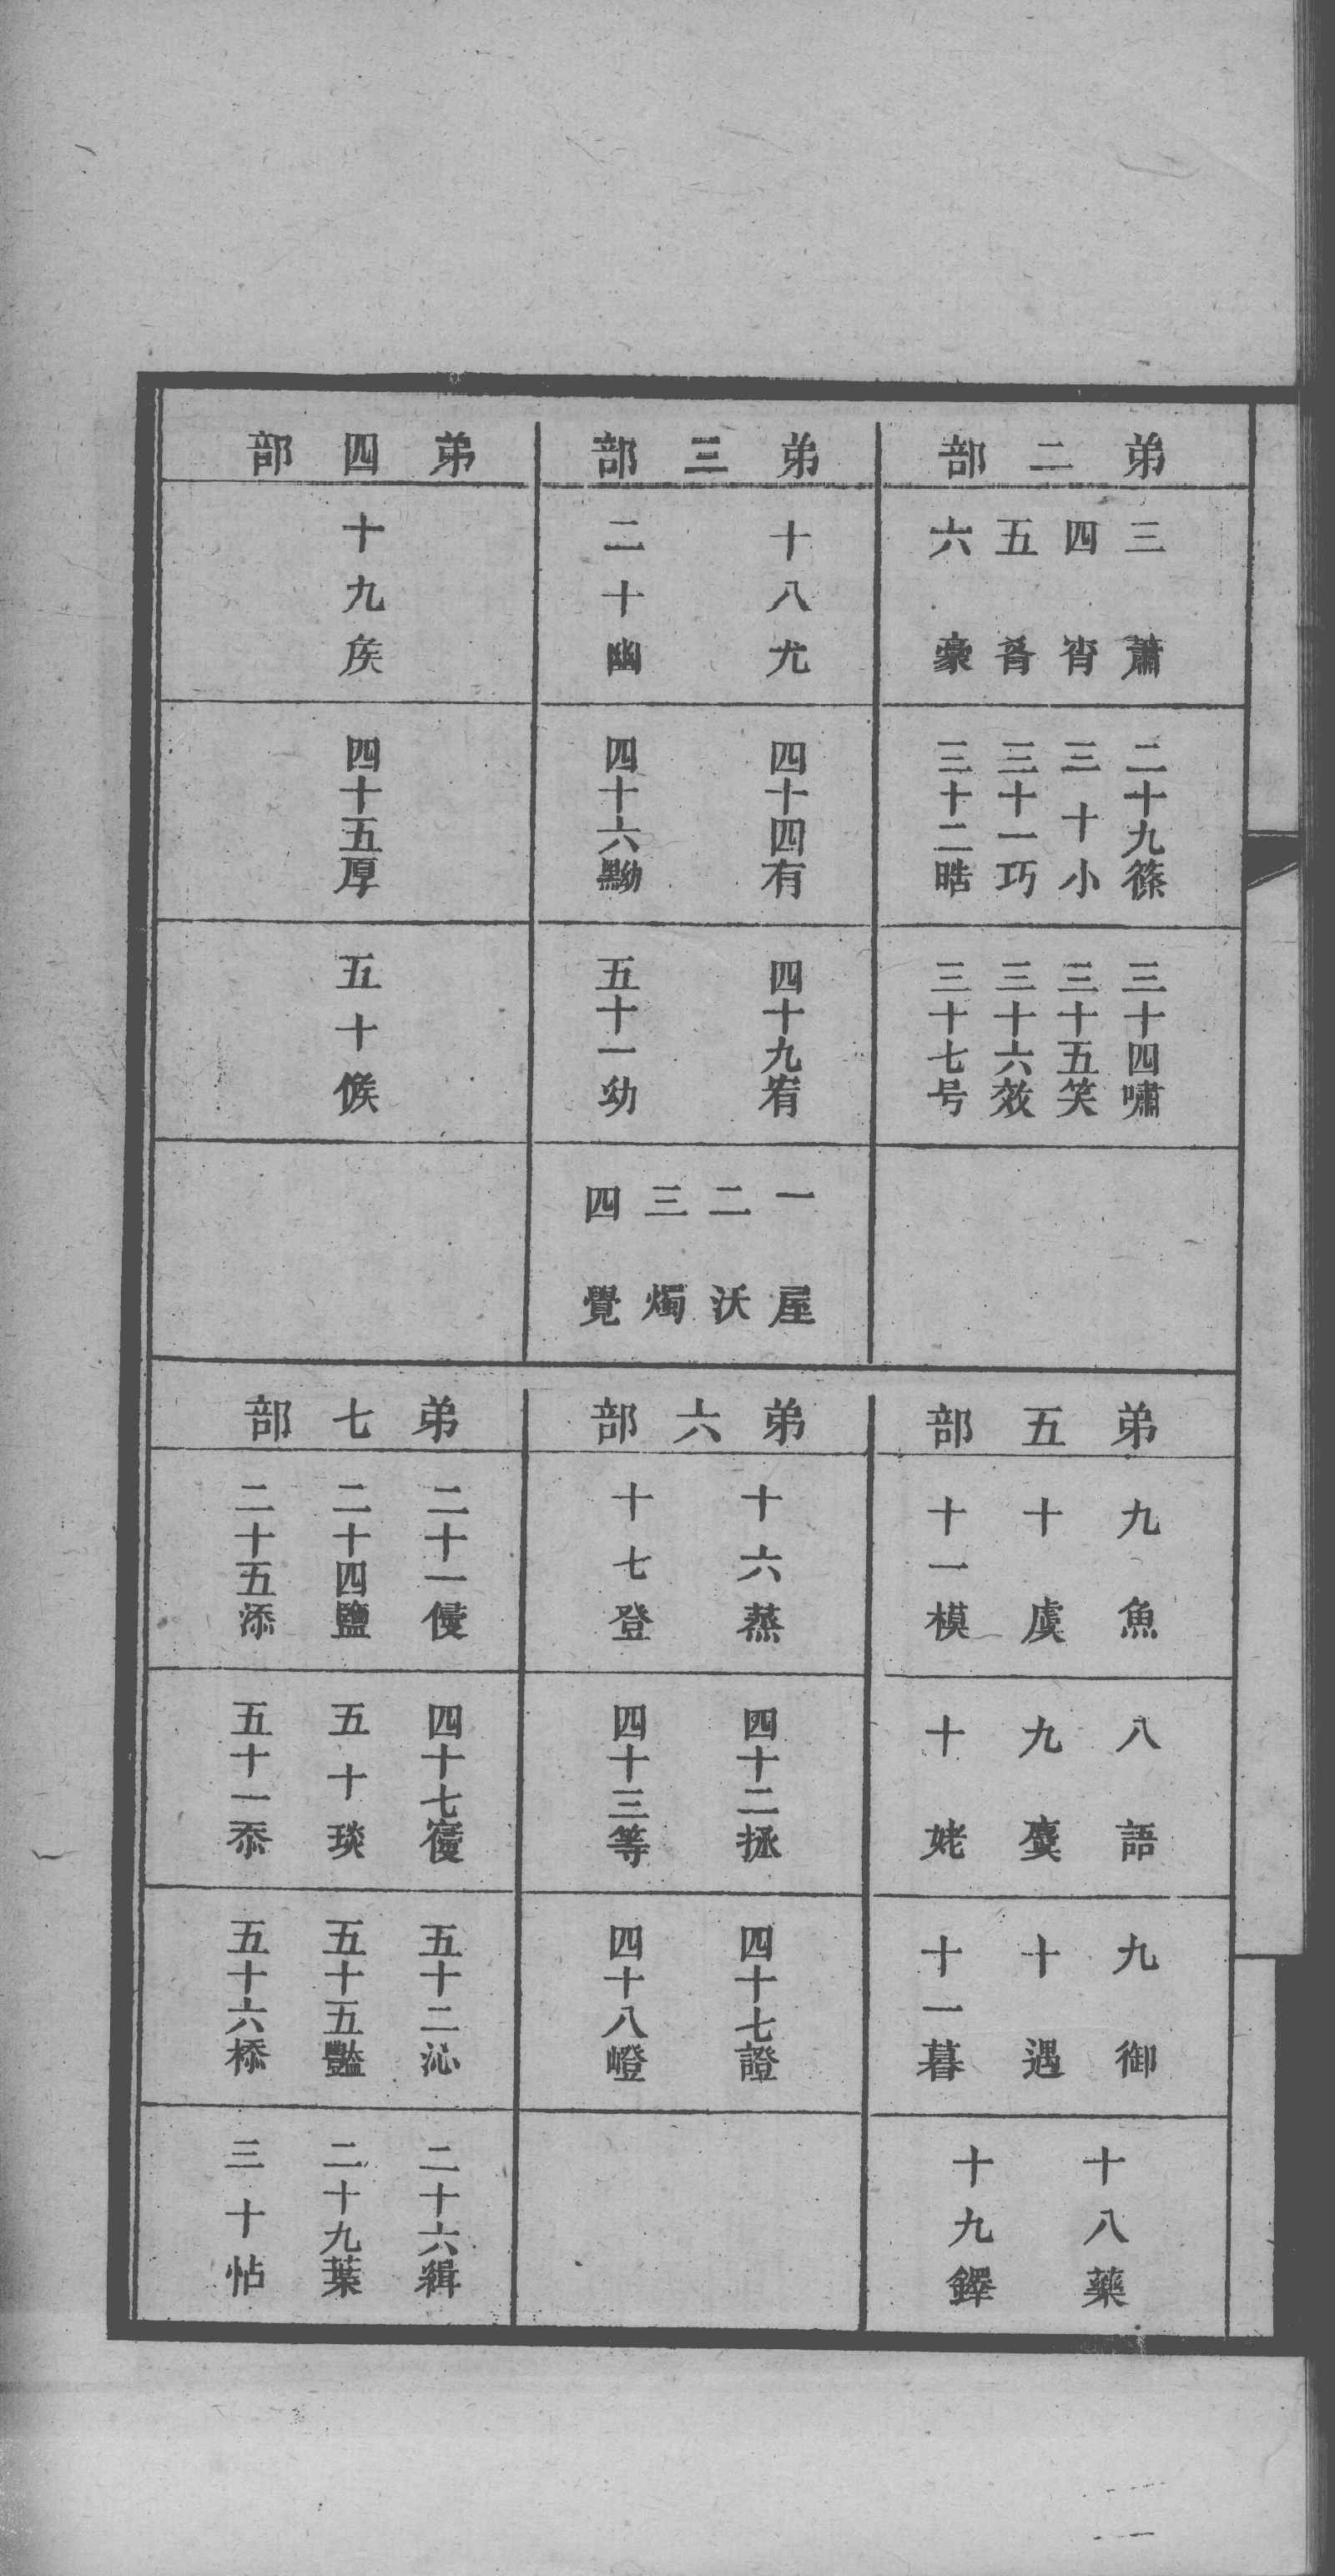 弟二部
三蕭
四宵
五肴
六豪
二十九篠
三十小
三十一巧
三十二晧
三十四嘯
三十五笑
三十六效
三十七号
弟三部
十八尤
二十幽
四十四有
四十六黝
四十九宥
五十一幼
一屋
二沃
三燭
四覺
弟四部
十九矦
四十五厚
五十候
弟五部
九魚
十虞
十一模
八語
九麌
十姥
九御
十遇
十一暮
十八藥
十九鐸
弟六部
十六蒸
十七登
四十二拯
四十三等
四十七證
四十八嶝
弟七部
二十一侵
二十四鹽
二十五添
四十七寑
五十琰
五十一忝
五十二沁
五十五豔
五十六㮇
二十六緝
二十九葉
三十帖